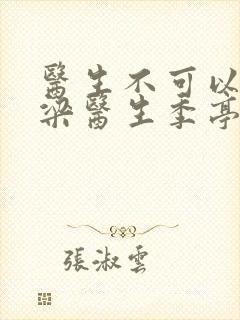 醫生不可以
梁醫生季亭
張淑雲